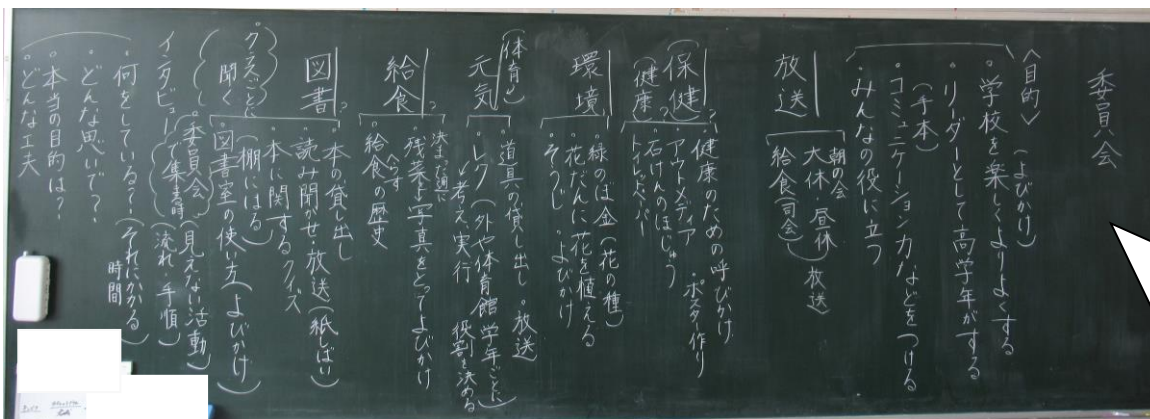 委員会
〈目的〉(よびかけ)
。学校を楽しくよりよくする
。リーダーとして高学年がする
(手本)
。コミュニケーション力などをつける
。みんなの役に立つ
放送
朝の会
大休・昼休 放送
給食(司会)
保健
(健康)
。健康のための呼びかけ
。アウトメディア ・ポスター作り
。石けんのほじゅう
トイレットペーパー
環境
。緑のぼ金(花の種)
。花だんに花を植える
。そうじ 。よびかけ
元気
(体育)
。道具の貸し出し 。放送
。レク(外や体育館 学年ごとに)
考え実行 役割を決める
給食
決まった週に
。残菜 写真をとってよびかけ
へらす
。給食の歴史
図書
。本の貸し出し
。読み聞かせ・放送(紙しばい)
。本に関するクイズ
(棚にはる)
図書室の使い方(よびかけ)
クラスごとに
聞く
。委員会 見えない活動
で集まる時 (流れ・手順)
インタビュー
。何をしている?(それにかかる)
時間
。どんな思いで?
。本当の目的は?
。どんな工夫